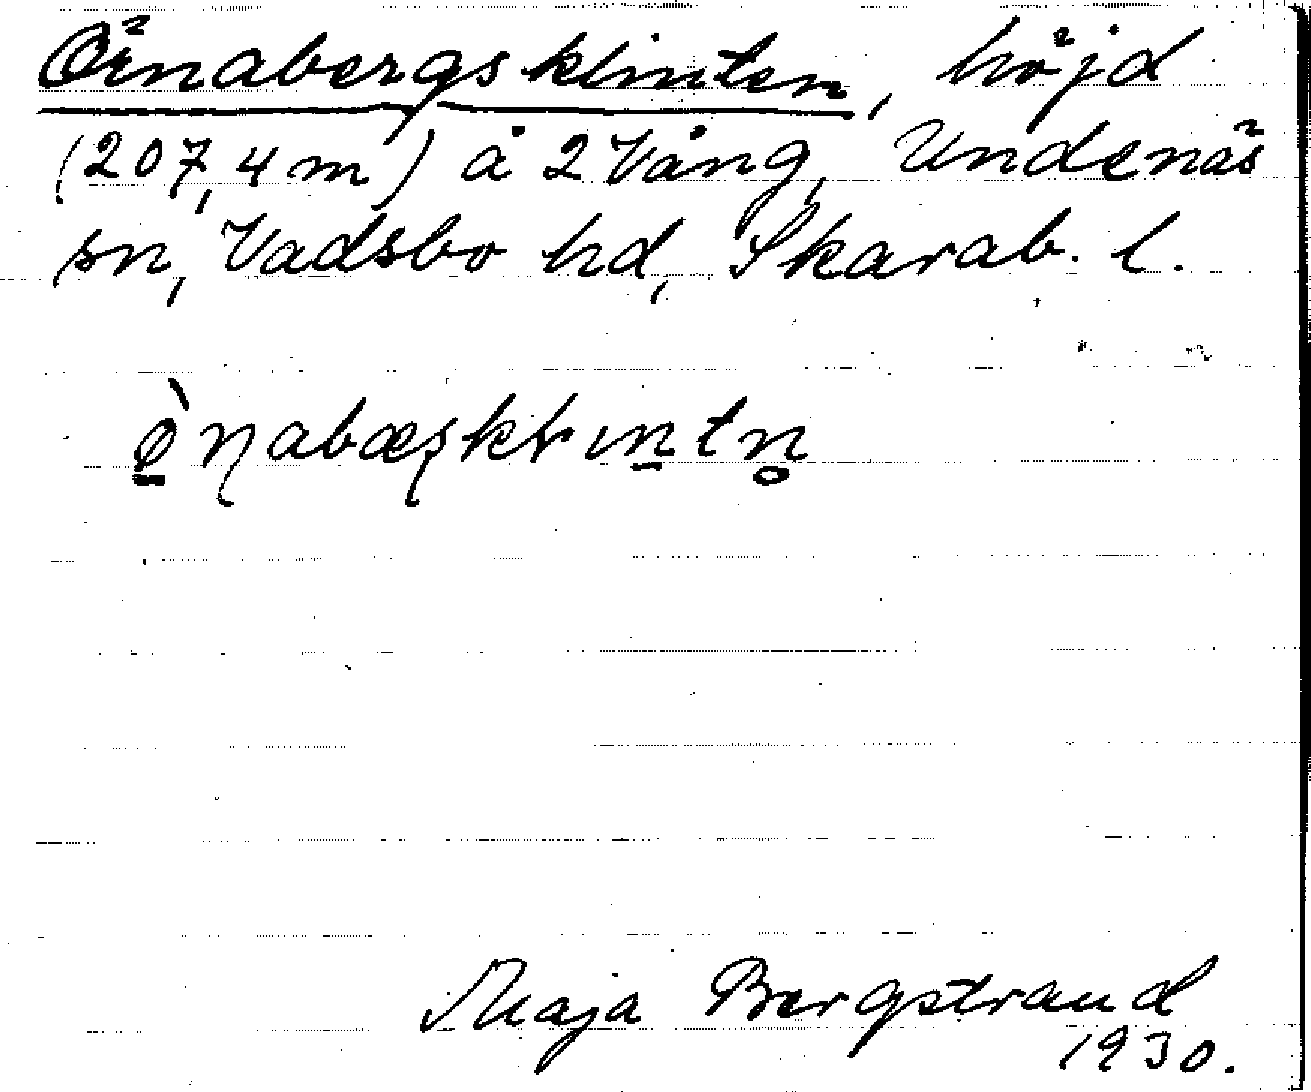 Örnabergsklinten, höjd
(207,4 m) å 2 Vång, Undenäs
sn, Vadsbo hd, Skarab. l.
Maja Bergstrand
1930.